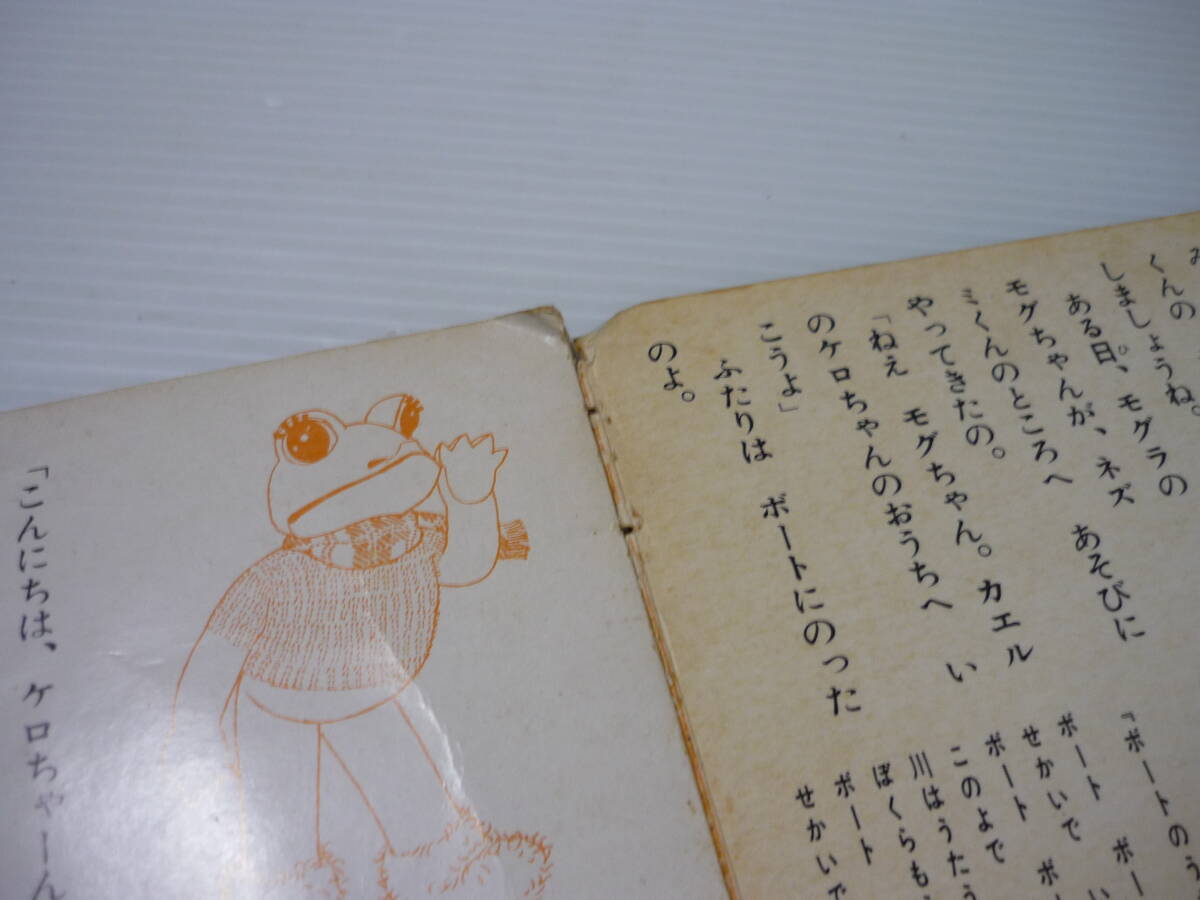 くんの
しましょうね。
ある日、モグラの
モグちゃんが、ネズ
ミくんのところへ　あそびに
やってきたの。
「ねえ　モグちゃん。カエル
のケロちゃんのおうちへ　い
こうよ」
ふたりは　ボートにのった
のよ。
「ボートのう
ボート　ボー
せかいで　い
ボート　ボ
このよで
川はうたう
ぼくらも
ボート
せかいで
「こんにちは、ケロちゃーん